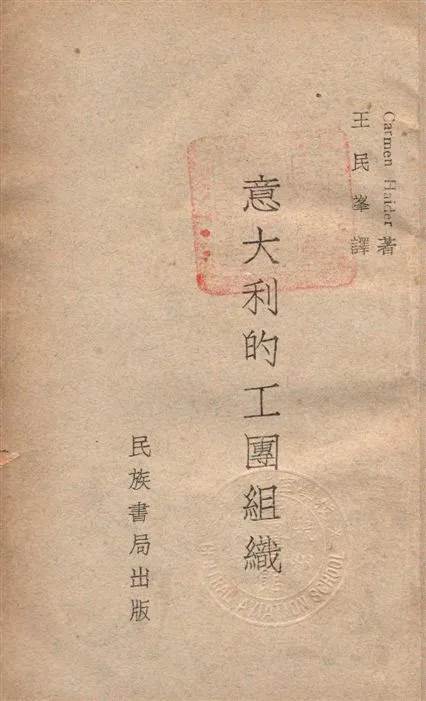 Carmen Haider 著
王民峯譯
意大利的工團組織
民族書局出版
CENTRAL AVIATION SCHOOL